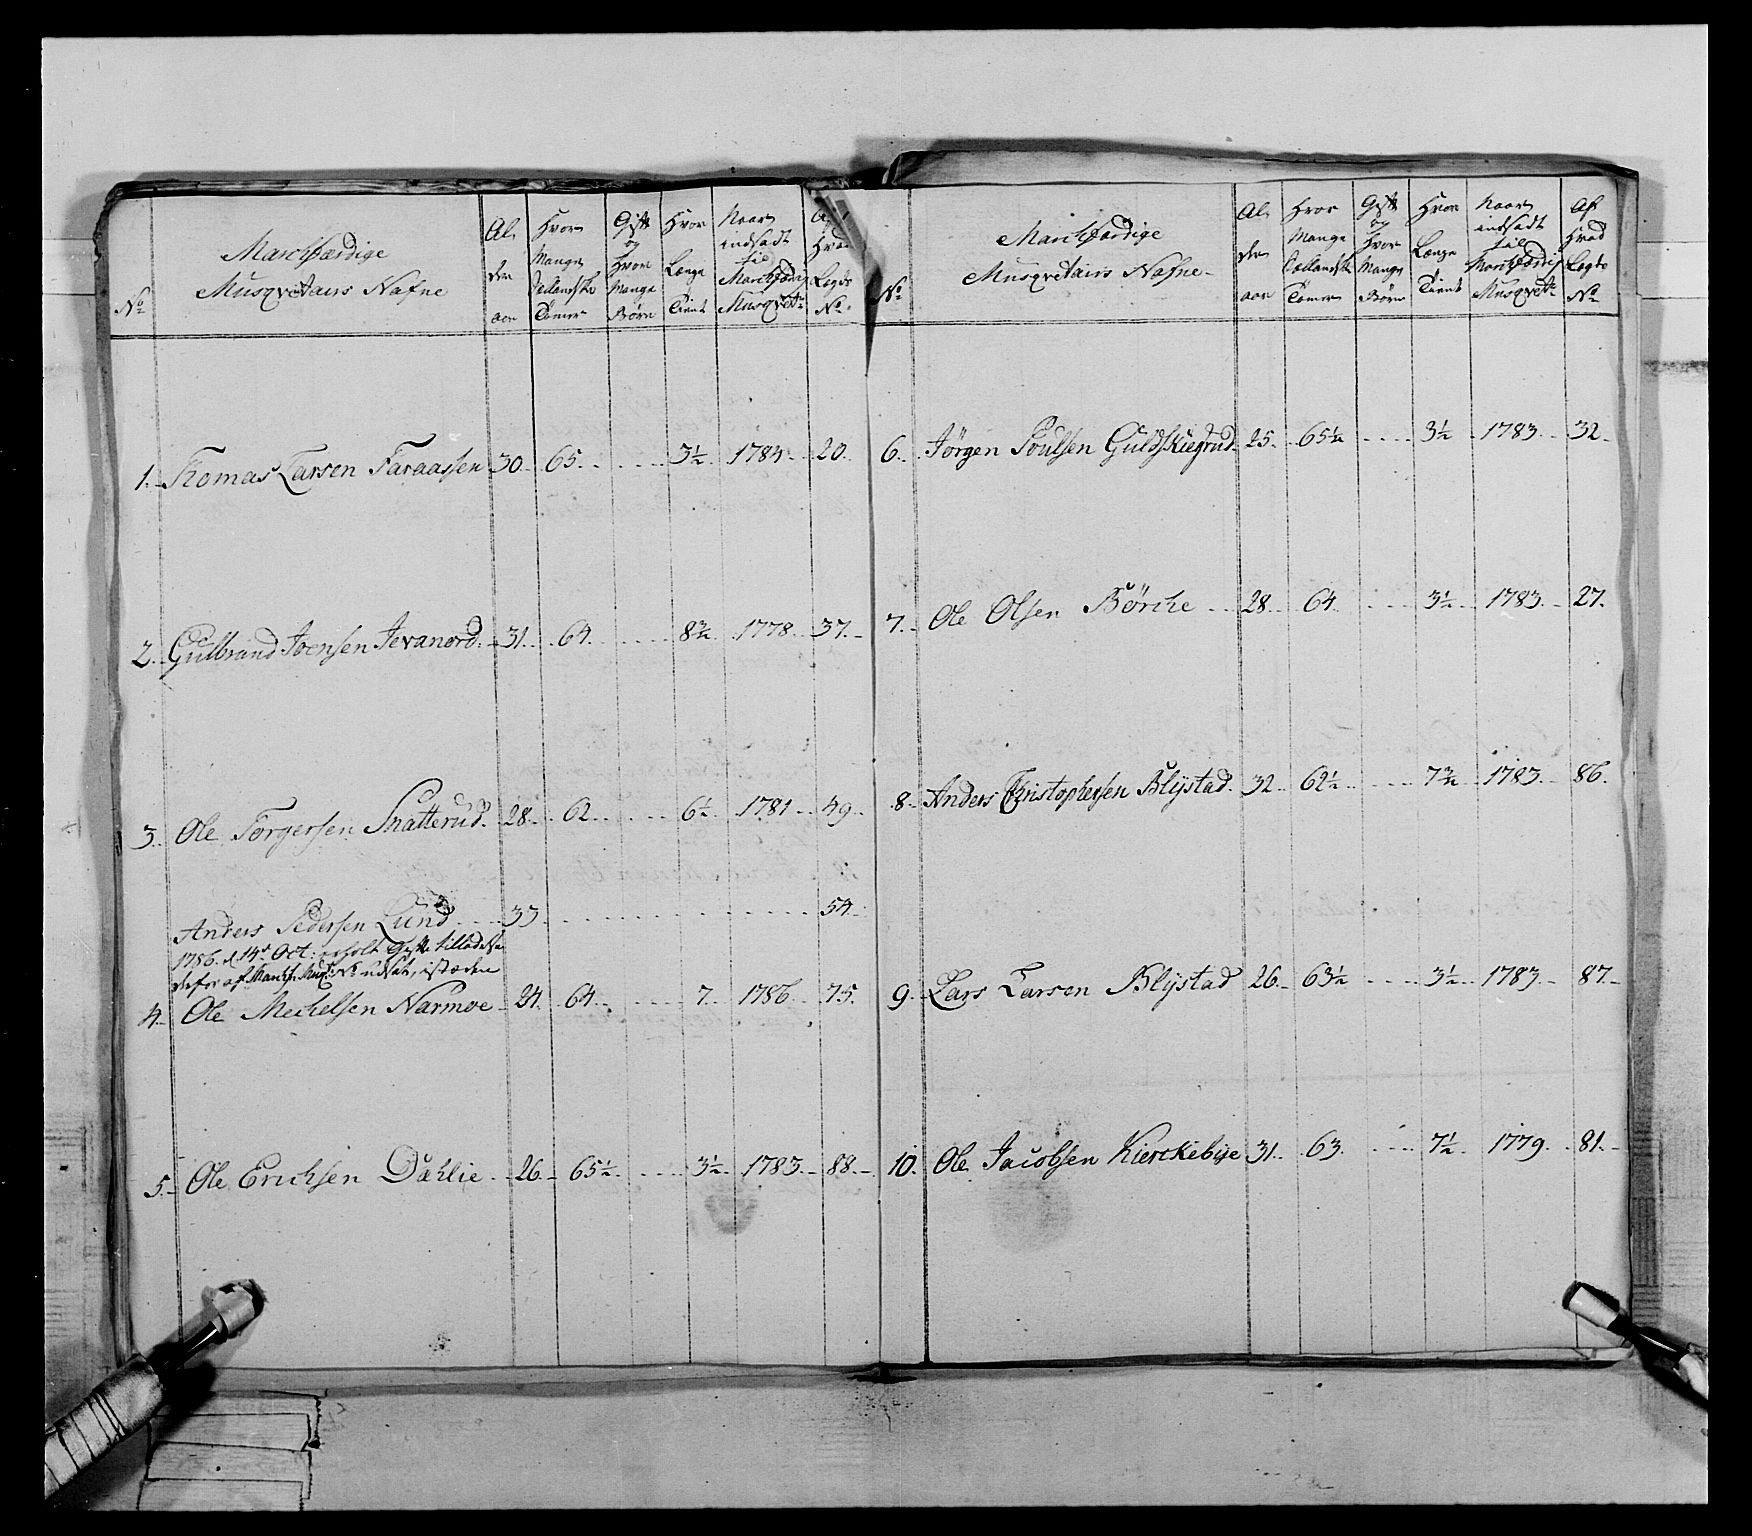 Marchfærdige
Musqvetairs Nafne
No
Al,
der
aar
Hvor
Mange
Sællandske
Tomer
Gift
og
Hvor
Mange
Børn
Hvor
Længe
Tient
Naar
indsadt
til
Marchfærdig
Musqvet:
Af
Hvad
Legds
No.
1. Thomas Larsen Taraassen 30. 65. 3½ 1784 20.
2. Gulbrand Joensen Jevanord. 31. 64. 8¾ 1778. 37.
3. Ole Torgersen Snatterud. 28. 62. 6½ 1781 49.
Anders Pedersen Lund 33 54.
1786. d. 14de Oct: erholt Gifte tilladelse
derfor af March: Musq: No udsat, istæden
4. Ole Mechelsen Narmoe 24. 64. 7. 1786. 75.
5. Ole Erichsen Dahlie 26. 65½ 3½ 1783. 88.
Marchfærdige
Musqvetairs Nafne
No
Al,
der
aar
Hvor
Mange
Sællandsk
Tomer
Gift
og
Hvor
Mange
Børn
Hvor
Længe
Tient
Naar
indsadt
til
Marchfærdig
Musqvet:
Af
Hvad
Legds
No
6. Jørgen Poulsen Guldskiegrud 25. 65½ 3½ 1783. 32.
7. Ole Olsen Børche 28. 64. 3½ 1783. 27.
8. Anders Christophersen Blystad. 32. 62½ 7¾ 1783. 86.
9. Lars Larsen Blystad 26. 63½ 3½ 1783. 87.
10. Ole Jacobsen Kierckebye 31. 63. 7½ 1779. 81.